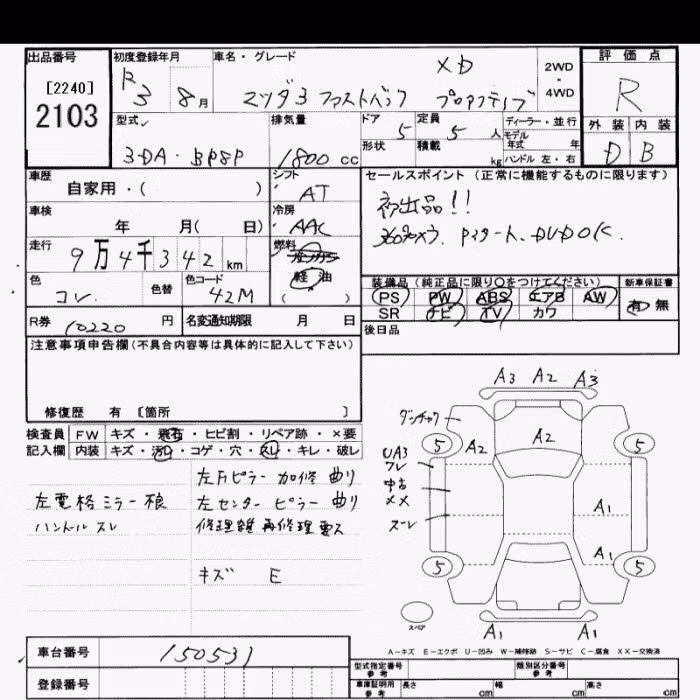 出品番号
[2240]
2103
初度登録年月
R3 8月
車名・グレード
XD
マツダ3 ファストバック プロアクティブ
2WD
・
4WD
評価点
R
外装 内装
D B
型式
3DA・BP8P
排気量
1800 cc
ドア
5
形状
定員
5 人
積載
kg
ディーラー・並行
モデル
年式 年
ハンドル 左・右
車歴
自家用・( )
シフト
AT
セールスポイント (正常に機能するものに限ります)
初出品!!
360°カメラ、Pスタート、DVDOK、
車検
年 月( 日)
冷房
AAC
走行
9万4千342 km
燃料
ガソリン
軽油
( )
色
コン
色替
色コード
42M
装備品 (純正品に限り○をつけてください)
新車保証書
PS PW ABS エアB AW
有 無
SR ナビ TV カワ
R券 10220 円
名変通知期限 月 日
後日品
注意事項申告欄(不具合内容等は具体的に記入して下さい)
修復歴 有 [箇所 ]
検査員 FW キズ・飛石・ヒビ割・リペア跡・×要
記入欄 内装 キズ・汚れ・コゲ・穴・スレ・キレ・破レ
左Fピラー 加修 曲り
左電格ミラー 根
左センターピラー 曲り
ハンドル スレ
修理鏡再修理要ス
キズ E
A3 A2 A3
5
A2
A2
5
UA3
ワレ
中古
メメ
ズーレ
A1
A1
5
5
スペア
A1 A1
A-キズ E-エクボ U-凹み W-補修跡 S-サビ C-腐食 XX-交換済
車台番号
150531
登録番号
型式指定番号
参考
類別区分番号
参考
車庫証明用
参考
長さ cm
幅 cm
高さ cm